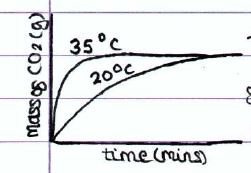 35°C
20°C
Mass of CO2 (g)
time (mins)